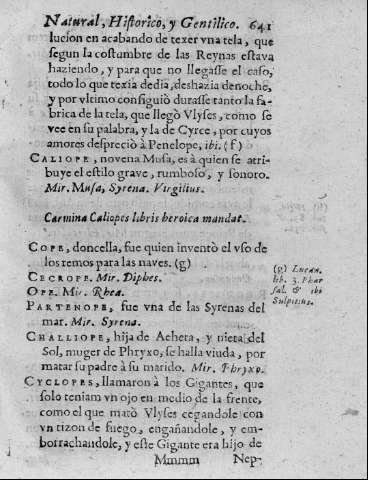 Natural, Historico, y Gentilico. 641
lucion en acabando de texer vna tela, que
segun la costumbre de las Reynas estava
haziendo, y para que no llegasse el caso,
todo lo que texia dedia, deshazia denoche,
y por vltimo consiguiò durasse tanto la fa-
brica de la tela, que llegò Vlyses, como se
vee en su palabra, y la de Cyrce, por cuyos
amores despreciò a Penelope, ibi. (f)
CALIOPE, novena Musa, es à quien se atri-
buye el estilo grave, rumboso, y sonoro.
Mir. Musa, Syrena. Virgilius.
Carmina Caliopes libris heroica mandat.
COPE, doncella, fue quien inventò el vso de
los remos para las naves. (g)
(g) Lucan.
lib. 3. Phar
sal. & ibi
Sulpitius.
CECROPE. Mir. Diphes.
OPE. Mir. Rhea.
PARTENOPE, fue vna de las Syrenas del
mar. Mir. Syrena.
CHALLIOPE, hija de Acheta, y nieta del
Sol, muger de Phryxo, se halla viuda, por
matar su padre à su marido. Mir. Phryxo.
CYCLOPES, llamaron à los Gigantes, que
solo teniam vn ojo en medio de la frente,
como el que matò Vlyses cegandole con
vn tizon de fuego, engañandole, y em-
borrachandole, y este Gigante era hijo de
Mmmm Nep-